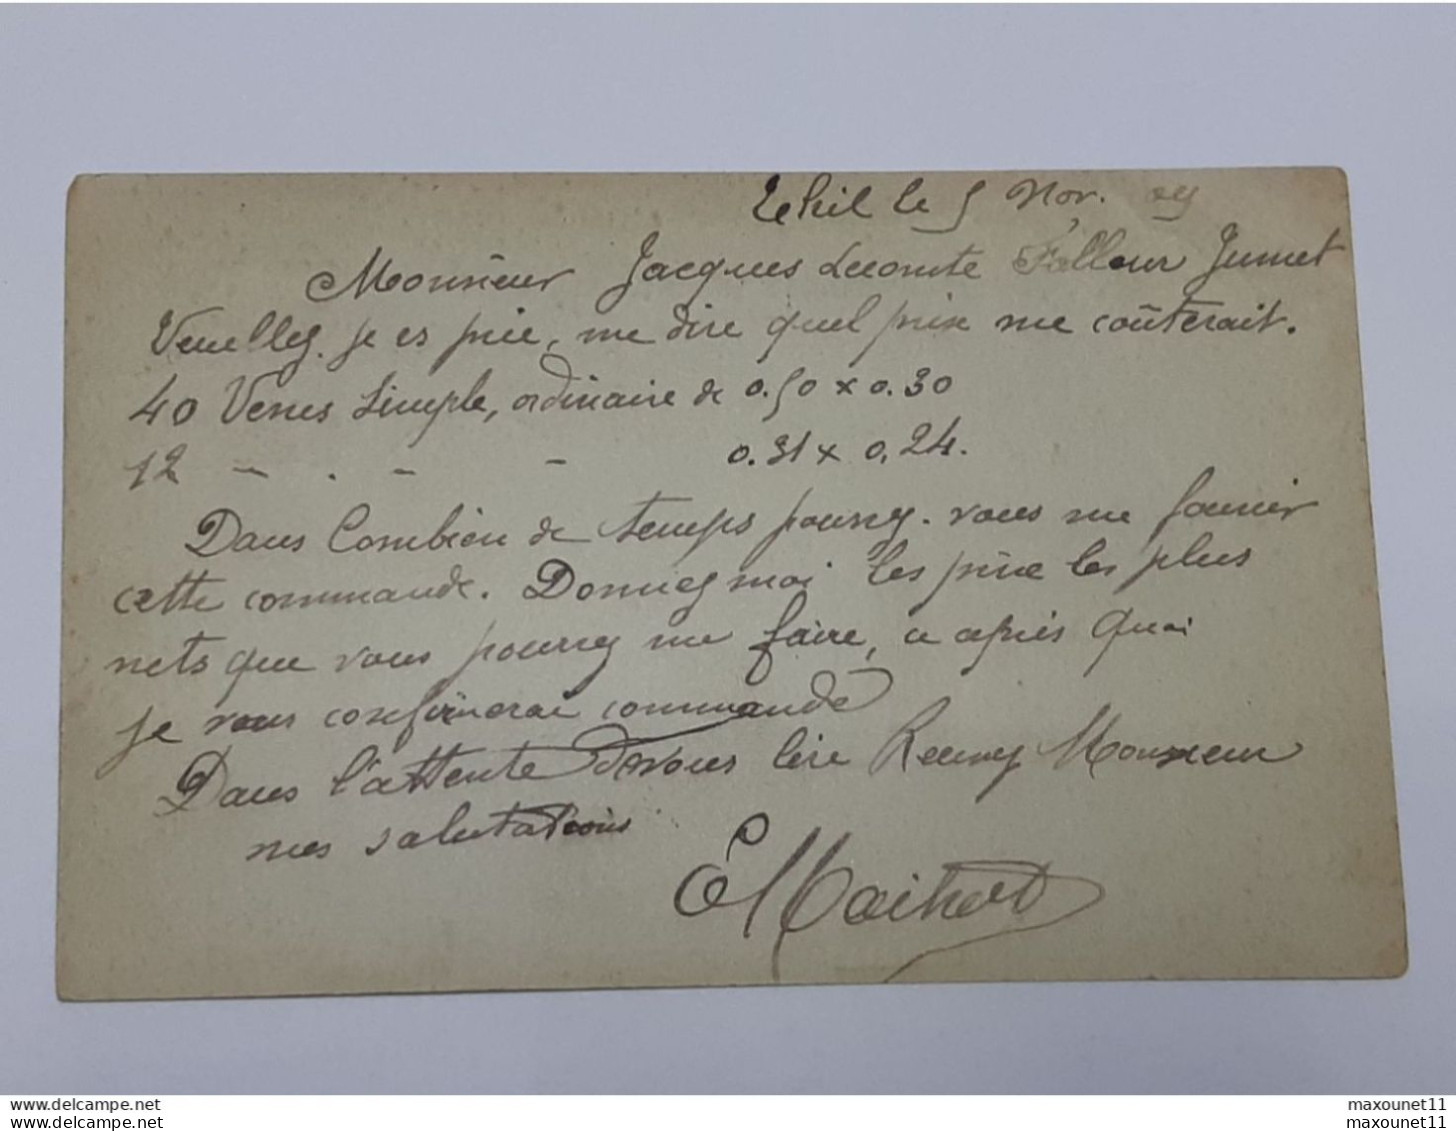 le 5 Nov. 09
Monsieur Jacques Lecomte Falleur Jumet
Veuillez je es prie, me dire quel prix me coûterait.
40 Verres Simple, ordinaire de 0.50 x 0.30
12 — . — — 0.31 x 0,24.
Dans Combien de temps pourrez-vous me fournir
cette commande. Donnez moi les prix les plus
nets que vous pourrez me faire, a après quoi
je vous confirmerai commande
Dans l'attente de vous lire Recevez Monsieur
mes salutations
maxounet11
maxounet11
maxounet11
maxounet11